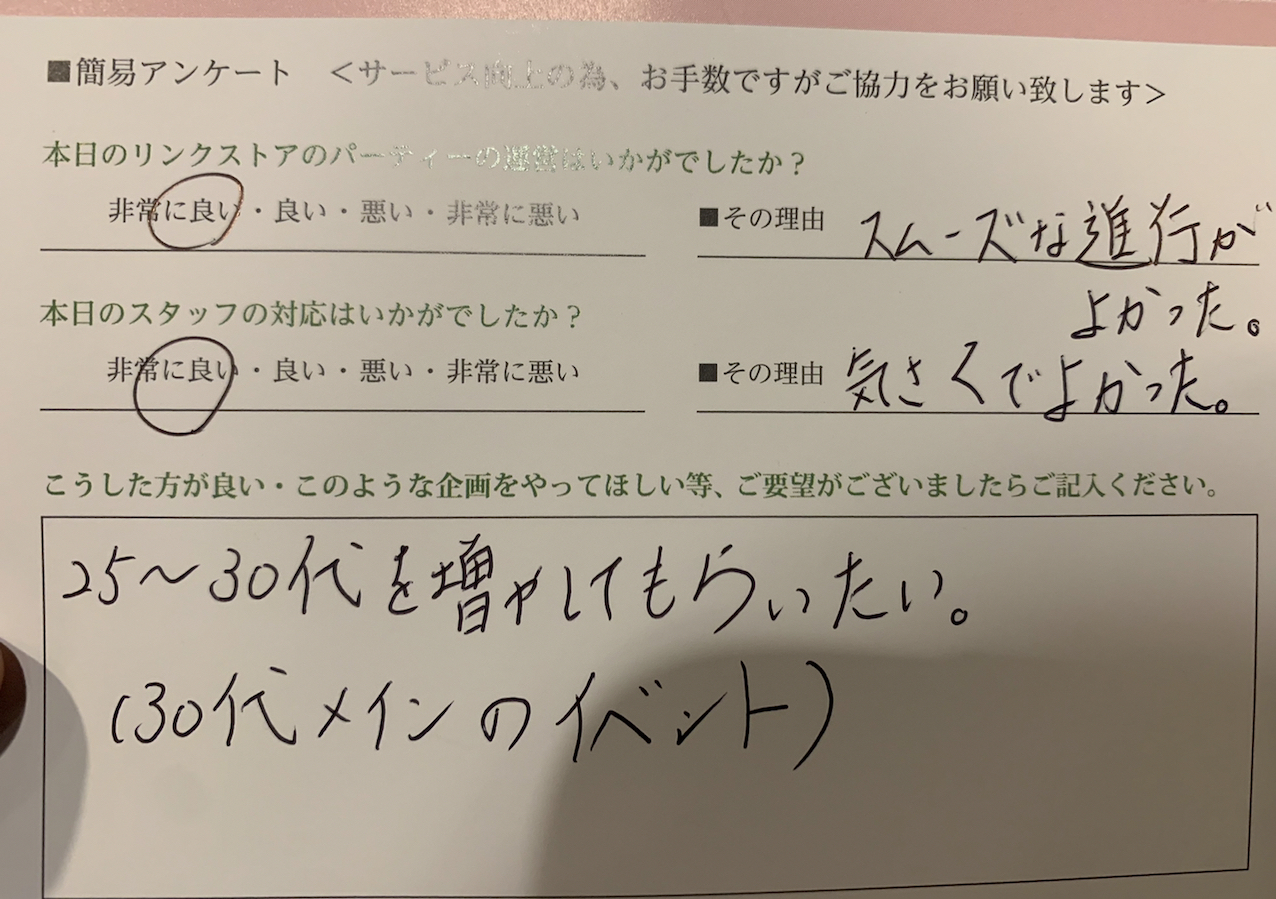 ■簡易アンケート <サービス向上の為、お手数ですがご協力をお願い致します>
本日のリンクストアのパーティーの運営はいかがでしたか?
非常に良い・良い・悪い・非常に悪い ■その理由 スムーズな進行が
よかった。
本日のスタッフの対応はいかがでしたか?
非常に良い・良い・悪い・非常に悪い ■その理由 気さくでよかった。
こうした方が良い・このような企画をやってほしい等、ご要望がございましたらご記入ください。
25〜30代を増やしてもらいたい。
(30代メインのイベント)